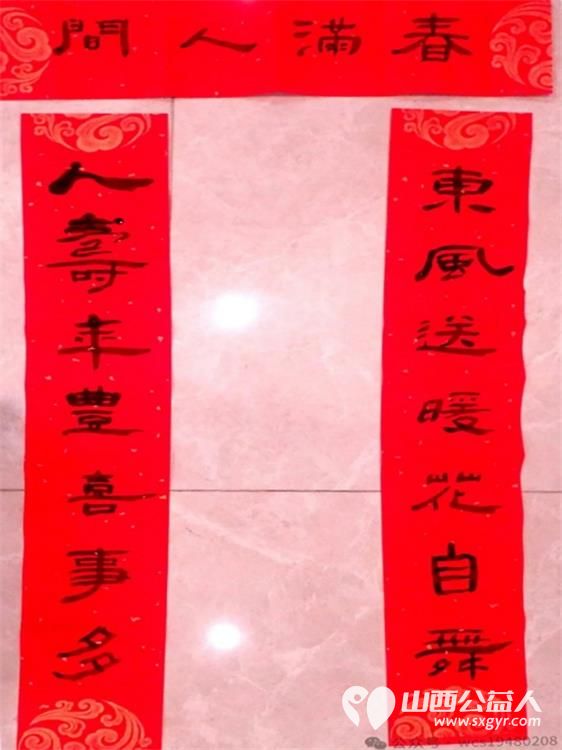 春滿人間
東風送暖花自舞
人壽年豐喜事多
山西公益人
www.sxgyr.com
公众号·wcs19480208